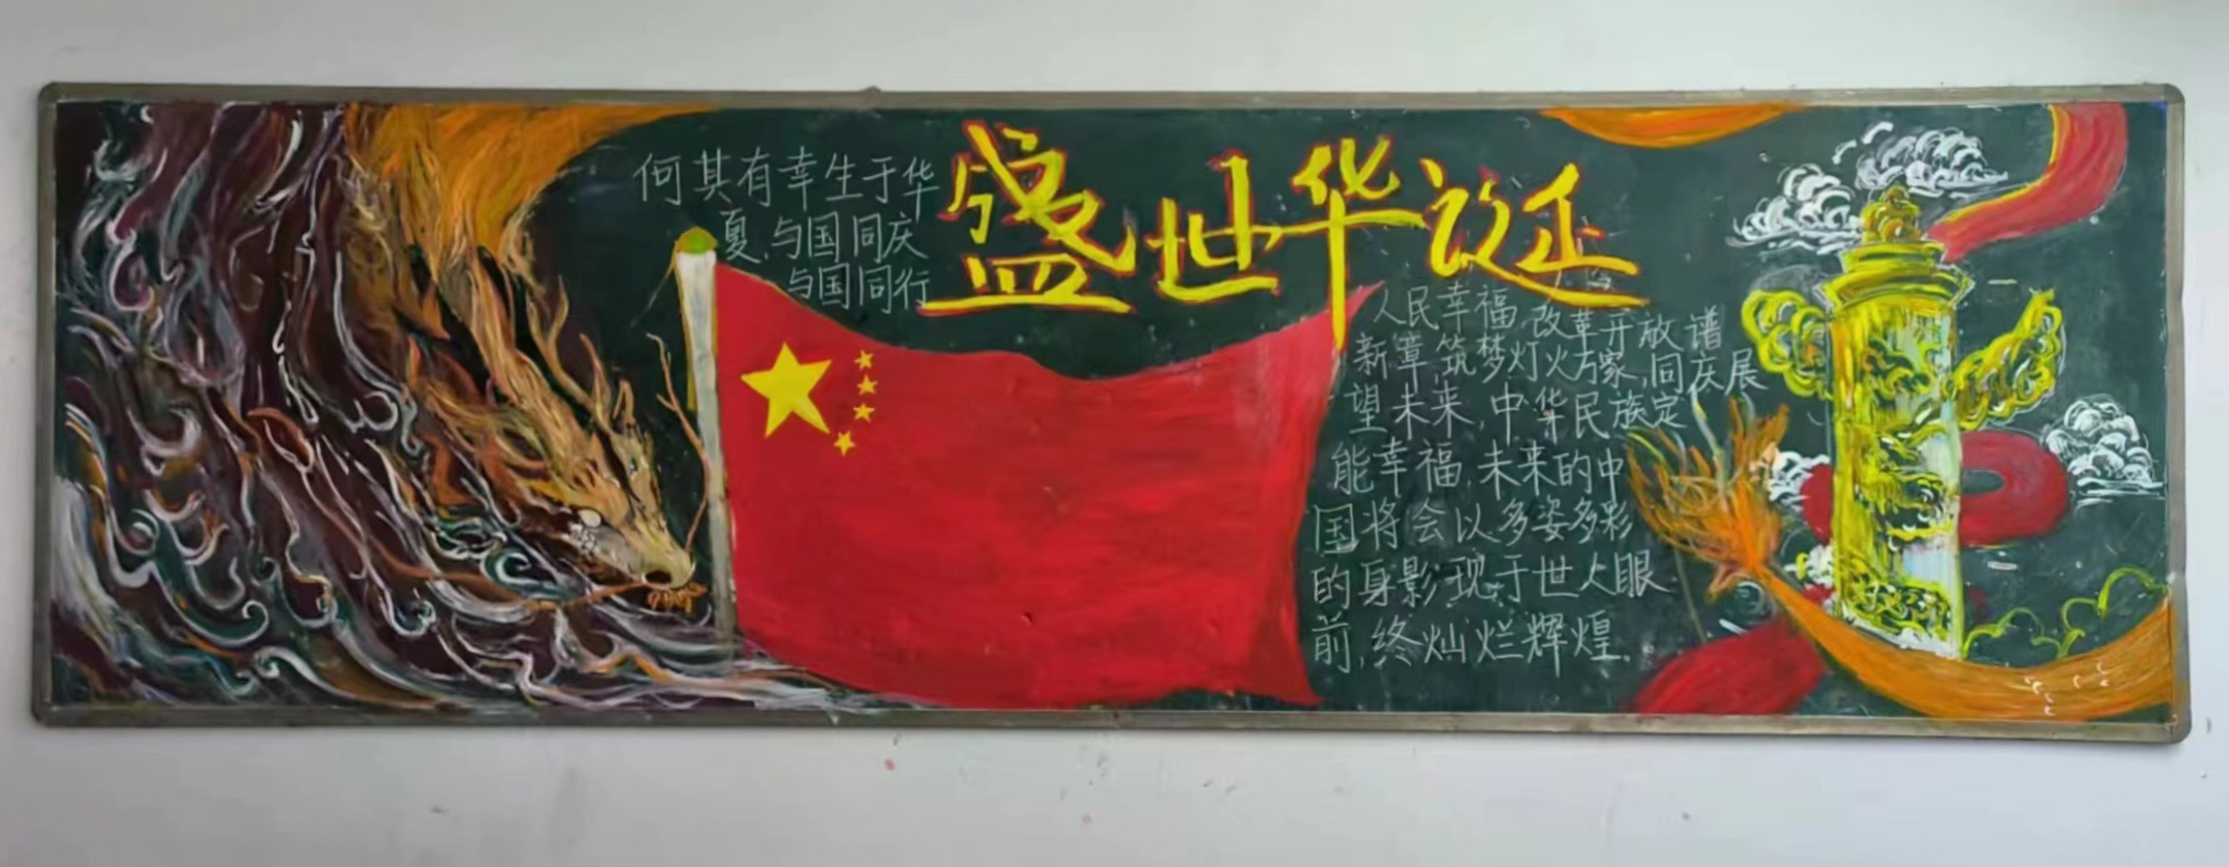 何其有幸生于华
夏,与国同庆
与国同行
盛世华诞
人民幸福,改革开放谱
新章,筑梦灯火万家,同庆展
望未来,中华民族定
能幸福,未来的中
国将会以多姿多彩
的身影现于世人眼
前,终灿烂辉煌.